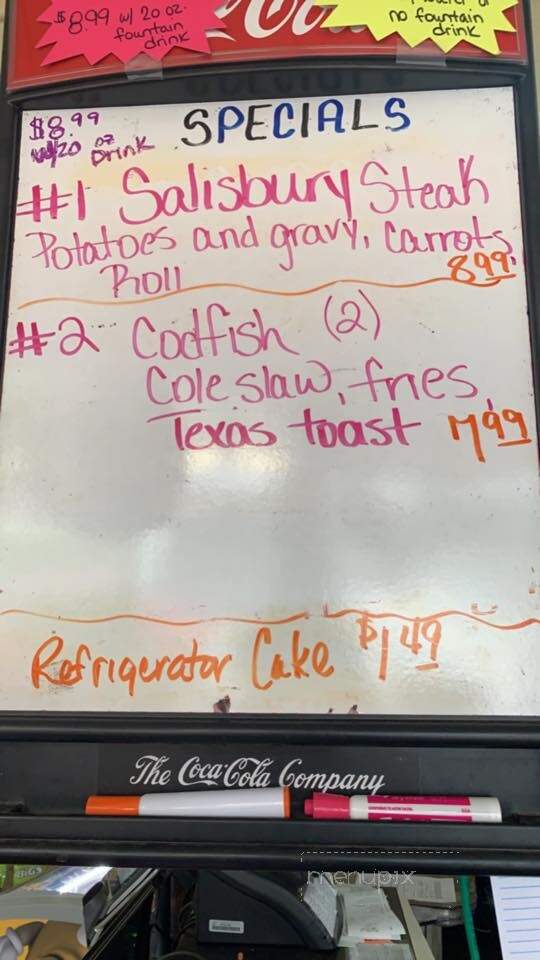 $8.99 w/ 20 oz.
fountain
drink
Co
no fountain
drink
$8.99
w/20 oz
Drink
SPECIALS
#1 Salisbury Steak
Potatoes and gravy, Carrots,
Roll
8.99
#2 Codfish (2)
Cole slaw, fries,
Texas toast 7.99
Refrigerator Cake $1.49
The Coca-Cola Company
BiGS
menupix